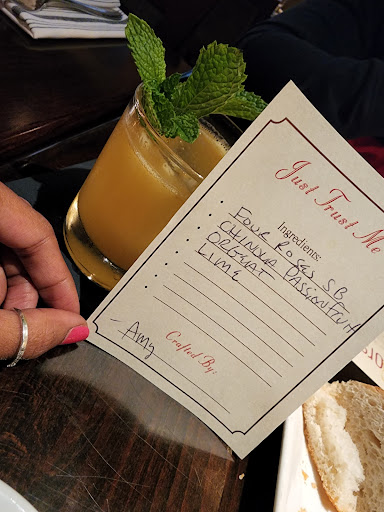 Just Trust Me
Ingredients:
FOUR ROSES SB
CHINOLA PASSIONFRUIT
ORGEAT
LIME
Crafted By:
- Amy